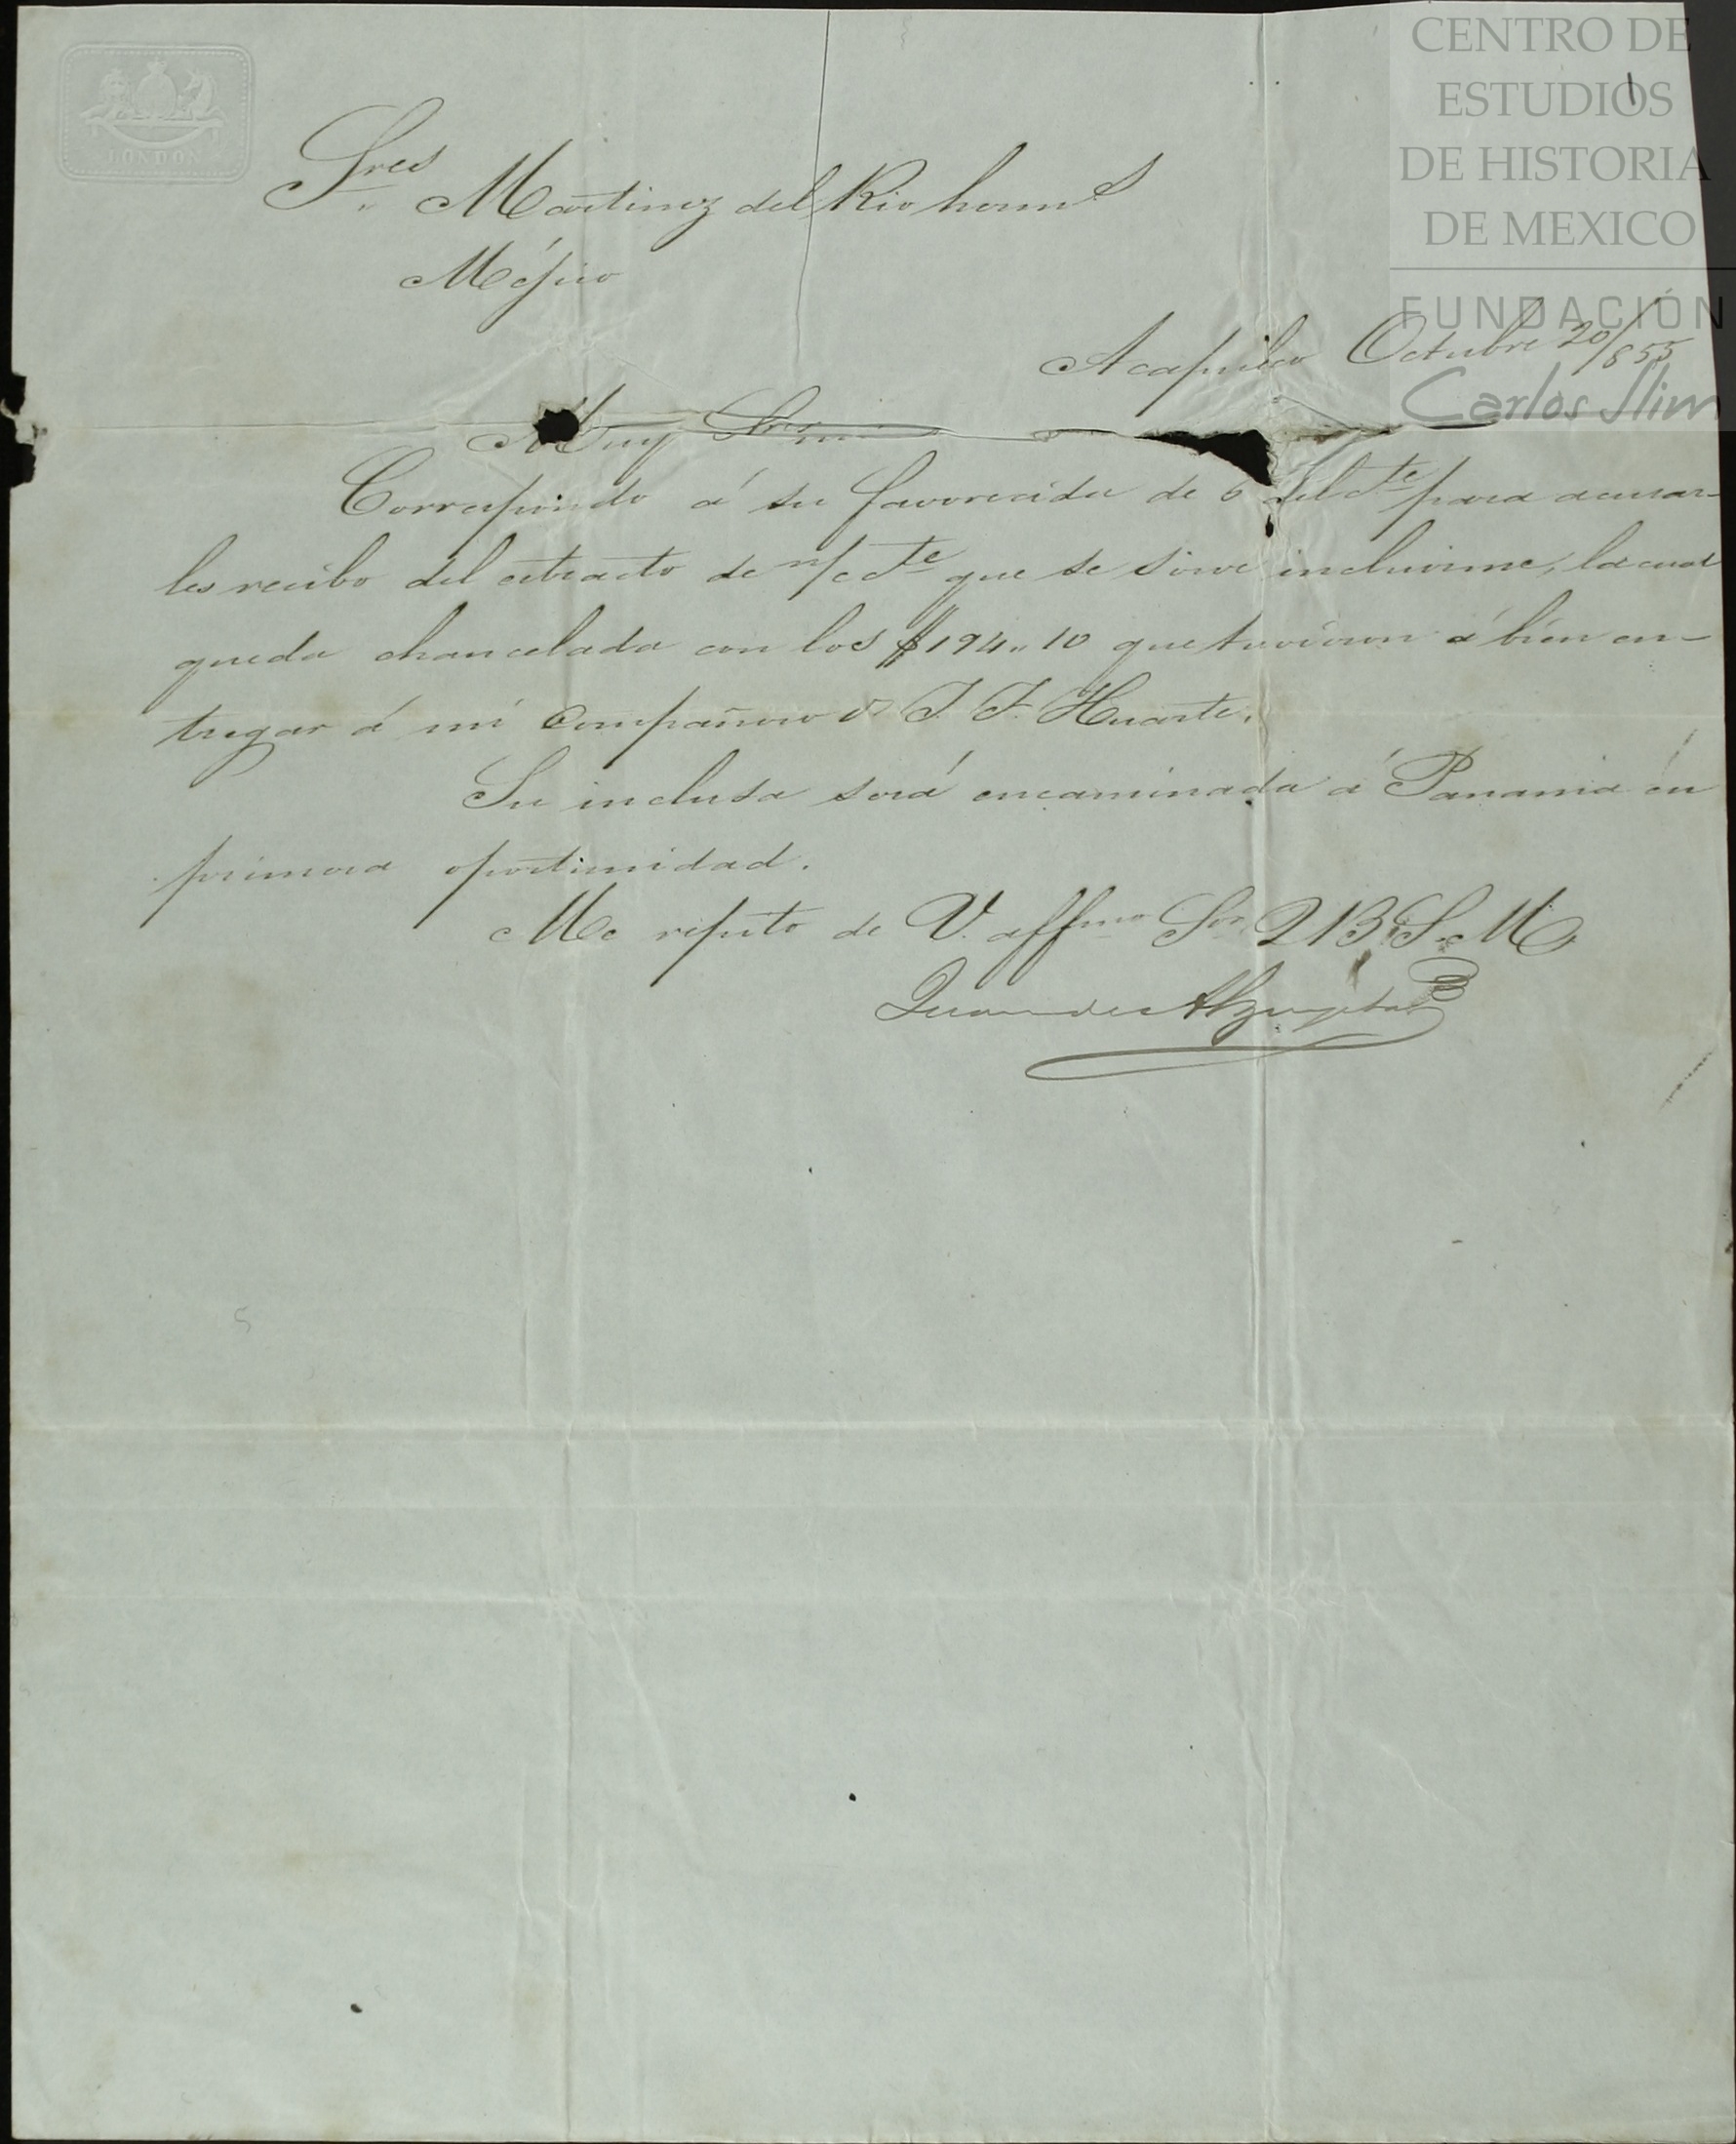 CENTRO DE
ESTUDIOS
DE HISTORIA
DE MEXICO
FUNDACIÓN
Carlos Slim
LONDON
Sres
Martinez del Rio herms
Méjico
Acapulco Octubre 20/855
Muy Sres mi
Correspondo á su favorecida de 6 del cte para acusar-
les recibo del estracto de n/c cte que se sirve incluirme, la cual
queda chancelada con los $194,, 10 que tuvieron á bien en-
tregar á mi compañero Dn J. F. Huarte.
Su inclusa será encaminada á Panamá en
primera oportunidad.
Me repito de V. affmo Sor Q B S. M
Juan de Alzuyeta